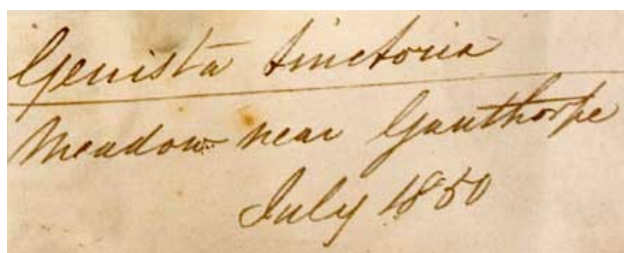 Genista tinctoria
Meadow near Ganthorpe
July 1850